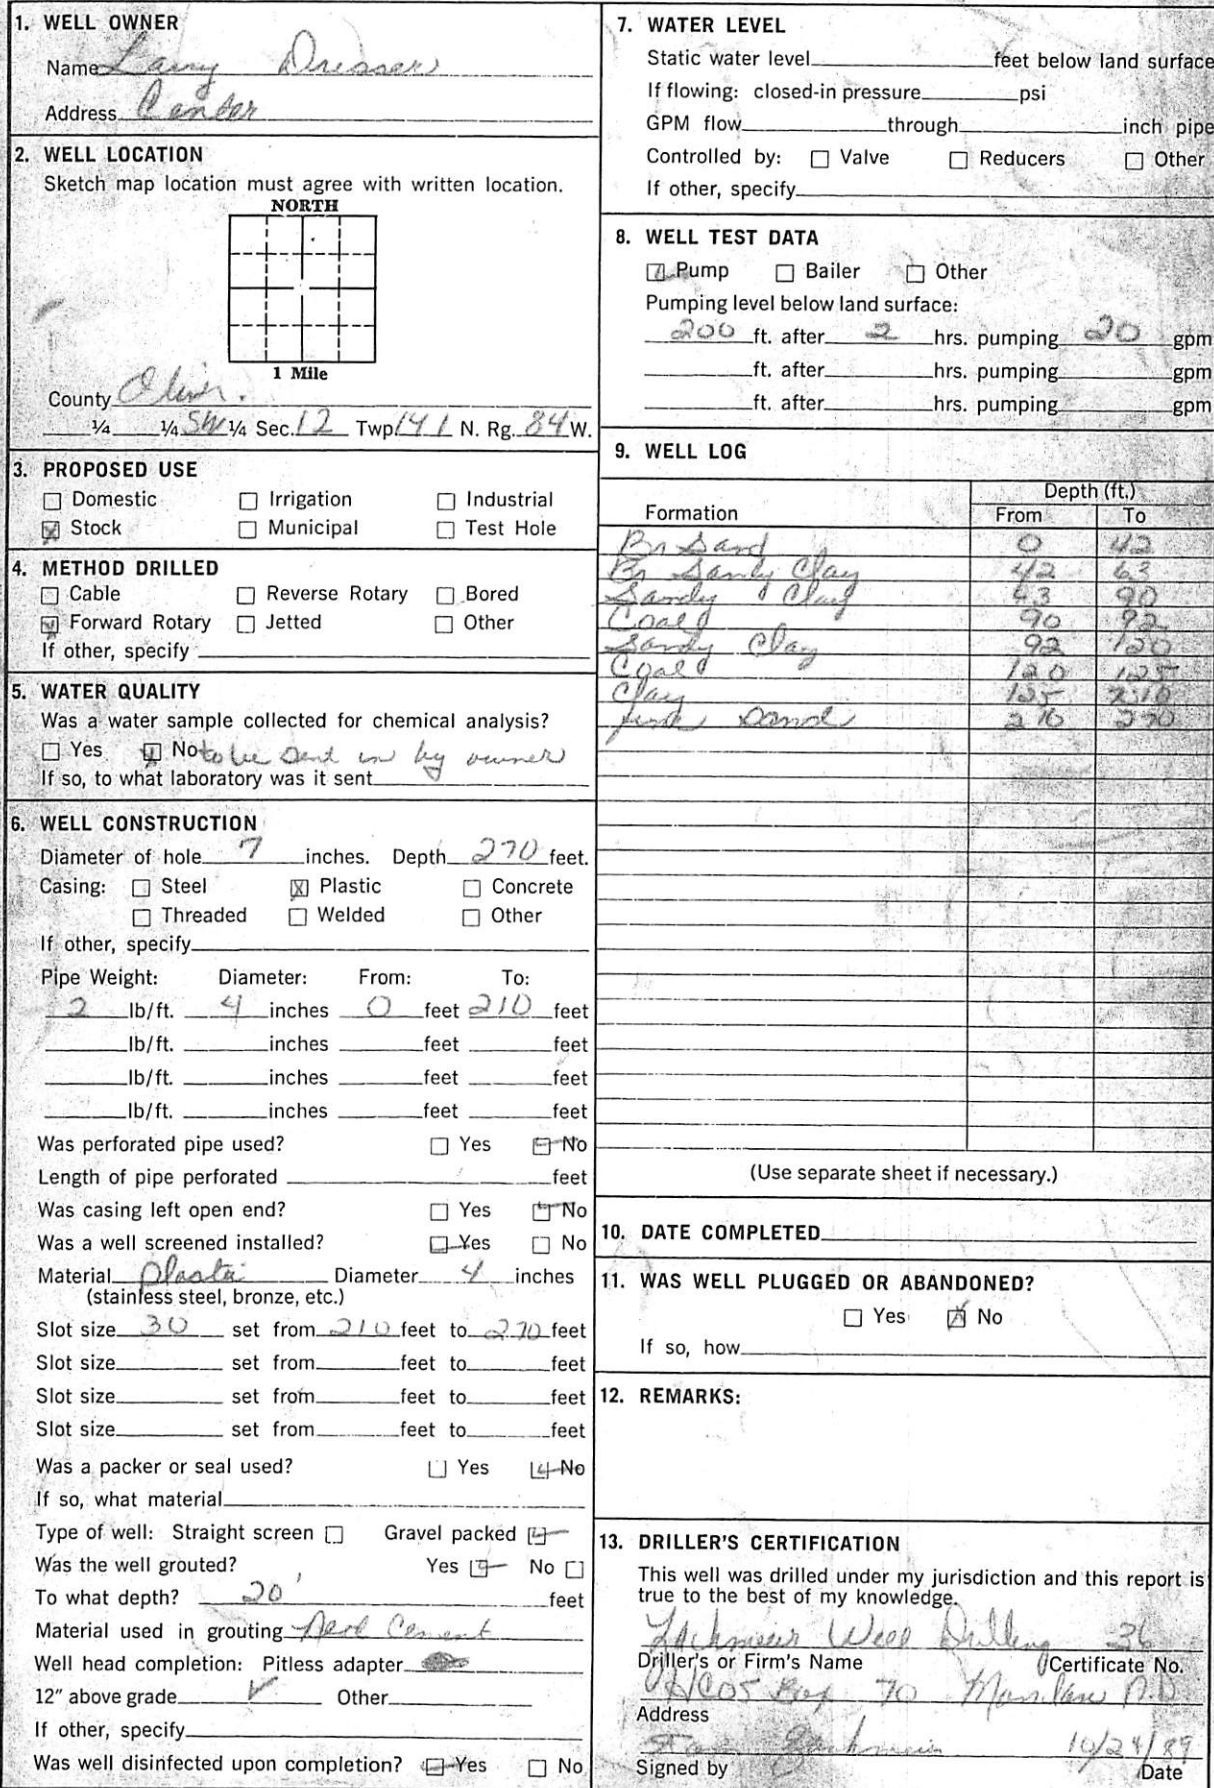 1. WELL OWNER
Name Larry Dresser
Address Center
2. WELL LOCATION
Sketch map location must agree with written location.
NORTH
1 Mile
County Oliver.
¼ ¼ SW ¼ Sec. 12 Twp 141 N. Rg. 84 W.
3. PROPOSED USE
☐ Domestic ☐ Irrigation ☐ Industrial
☒ Stock ☐ Municipal ☐ Test Hole
4. METHOD DRILLED
☐ Cable ☐ Reverse Rotary ☐ Bored
☒ Forward Rotary ☐ Jetted ☐ Other
If other, specify
5. WATER QUALITY
Was a water sample collected for chemical analysis?
☐ Yes ☒ No to be sent in by owner
If so, to what laboratory was it sent
6. WELL CONSTRUCTION
Diameter of hole 7 inches. Depth 270 feet.
Casing: ☐ Steel ☒ Plastic ☐ Concrete
☐ Threaded ☐ Welded ☐ Other
If other, specify
Pipe Weight: Diameter: From: To:
2 lb/ft. 4 inches 0 feet 210 feet
lb/ft. inches feet feet
lb/ft. inches feet feet
lb/ft. inches feet feet
Was perforated pipe used? ☐ Yes ☒ No
Length of pipe perforated feet
Was casing left open end? ☐ Yes ☒ No
Was a well screened installed? ☒ Yes ☐ No
Material Plastic Diameter 4 inches
(stainless steel, bronze, etc.)
Slot size 30 set from 210 feet to 270 feet
Slot size set from feet to feet
Slot size set from feet to feet
Slot size set from feet to feet
Was a packer or seal used? ☐ Yes ☒ No
If so, what material
Type of well: Straight screen ☐ Gravel packed ☒
Was the well grouted? Yes ☒ No ☐
To what depth? 20' feet
Material used in grouting Neat Cement
Well head completion: Pitless adapter
12" above grade ✓ Other
If other, specify
Was well disinfected upon completion? ☒ Yes ☐ No
7. WATER LEVEL
Static water level feet below land surface
If flowing: closed-in pressure psi
GPM flow through inch pipe
Controlled by: ☐ Valve ☐ Reducers ☐ Other
If other, specify
8. WELL TEST DATA
☒ Pump ☐ Bailer ☐ Other
Pumping level below land surface:
200 ft. after 2 hrs. pumping 20 gpm
ft. after hrs. pumping gpm
ft. after hrs. pumping gpm
9. WELL LOG
Depth (ft.)
Formation From To
Br Sand 0 42
Br Sandy Clay 42 63
Sandy Clay 63 90
Coal 90 92
Sandy Clay 92 120
Coal 120 125
Clay 125 210
fine Sand 210 270
(Use separate sheet if necessary.)
10. DATE COMPLETED
11. WAS WELL PLUGGED OR ABANDONED?
☐ Yes ☒ No
If so, how
12. REMARKS:
13. DRILLER'S CERTIFICATION
This well was drilled under my jurisdiction and this report is
true to the best of my knowledge.
Well Drilling 36
Driller's or Firm's Name Certificate No.
HC05 Box 70 Mandan N.D
Address
10/24/89
Signed by Date